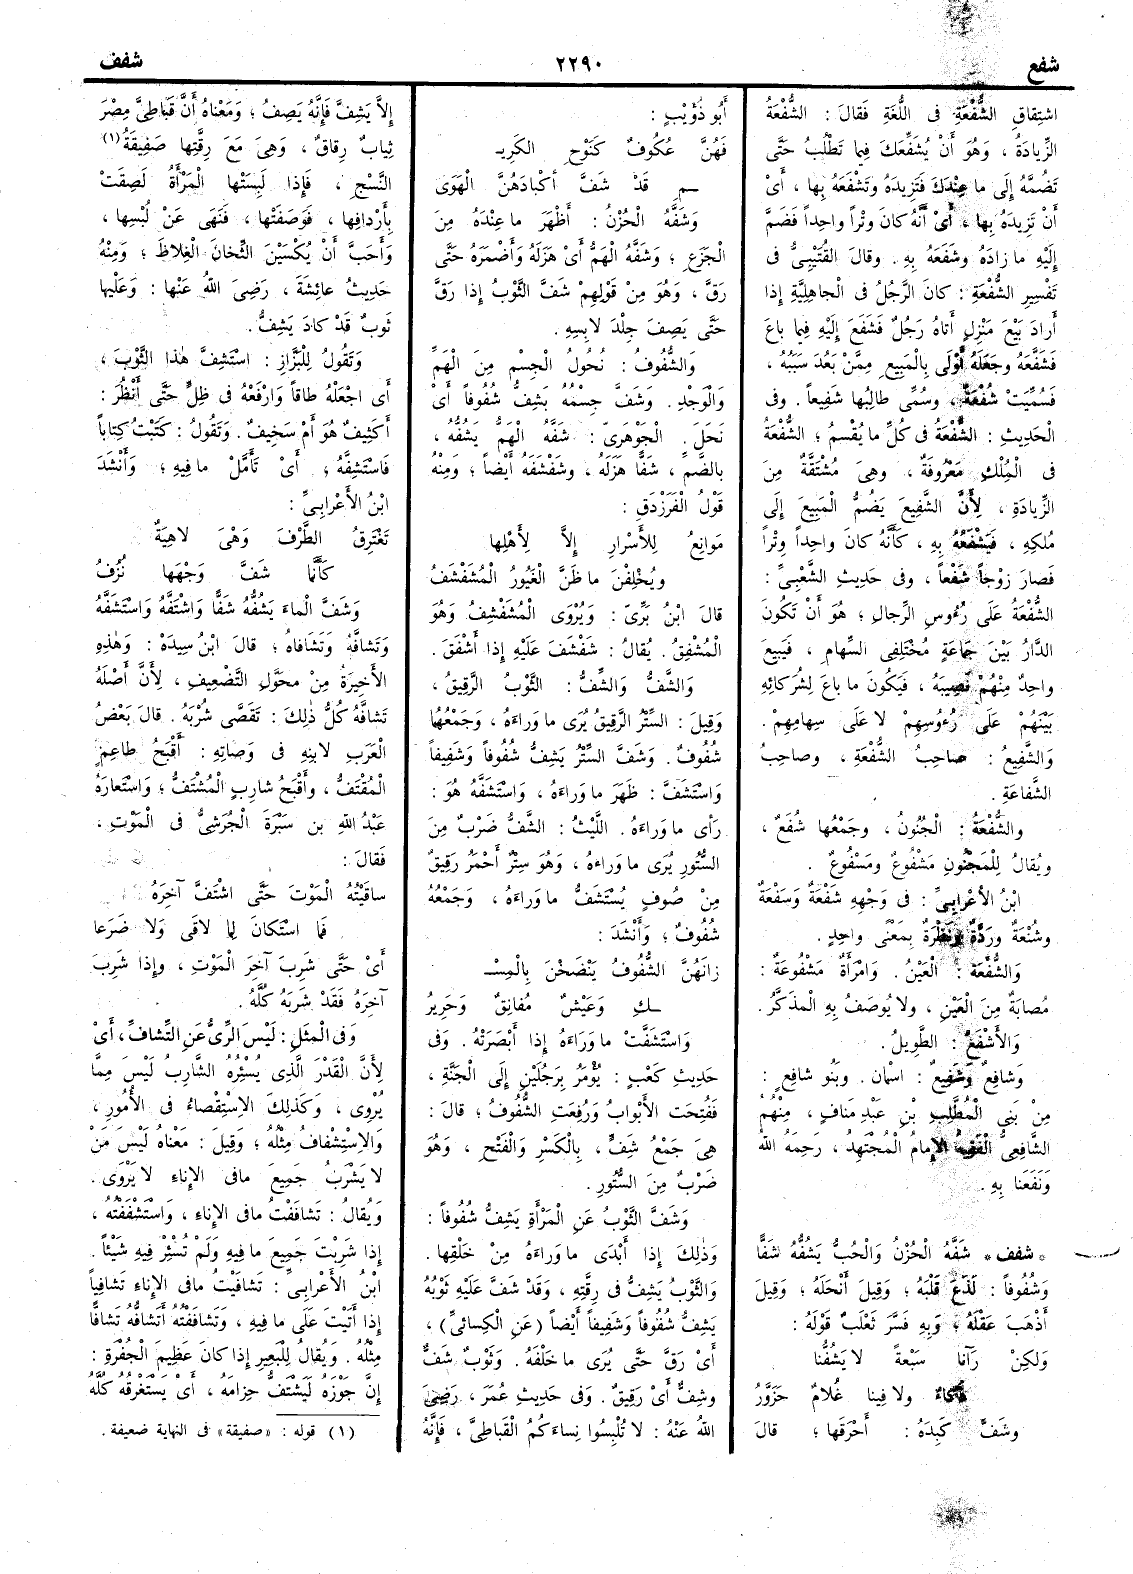 شفع
٢٢٩٠
شفف
اشْتِقاقِ الشُّفْعَةِ فى اللُّغَةِ فَقالَ : الشُّفْعَةُ
الزِّيادَةُ ، وَهُوَ أَنْ يُشَفِّعَكَ فِيما تَطْلُبُ حَتَّى
تَضُمَّهُ إِلَى ما عِنْدَكَ فَتَزِيدَهُ وتَشْفَعَهُ بِها ، أَىْ
أَنْ تَزِيدَهُ بِها ، أَىْ أَنَّهُ كانَ وَتْراً واحِداً فَضَمَّ
إِلَيْهِ ما زادَهُ وشَفَعَهُ بِهِ . وقالَ القُتَيْبِىُّ فى
تَفْسِيرِ الشُّفْعَةِ : كانَ الرَّجُلُ فى الجاهِلِيَّةِ إذا
أَرادَ بَيْعَ مَنْزِلٍ أَتاهُ رَجُلٌ فَشَفَعَ إِلَيْهِ فِيما باعَ
فَشَفَّعَهُ وجَعَلَهُ أَوْلَى بِالْمَبِيعِ مِمَّنْ بَعُدَ سَبَبُهُ ،
فَسُمِّيَتْ شُفْعَةً ، وسُمِّى طالِبُها شَفِيعاً . وفى
الْحَدِيثِ : الشُّفْعَةُ فى كُلِّ ما يُقْسَمُ ؛ الشُّفْعَةُ
فى الْمُلْكِ مَعْرُوفَةٌ ، وهِىَ مُشْتَقَّةٌ مِنَ
الزِّيادَةِ ، لِأَنَّ الشَّفِيعَ يَضُمُّ الْمَبِيعَ إِلَى
مُلكِهِ ، فَيَشْفَعُهُ بِهِ ، كَأَنَّهُ كانَ واحِداً وَتْراً
فَصارَ زَوْجاً شَفْعاً ، وفى حَدِيثِ الشَّعْبِىِّ :
الشُّفْعَةُ عَلَى رُءُوسِ الرِّجالِ ؛ هُوَ أَنْ تَكُونَ
الدَّارُ بَيْنَ جَماعَةٍ مُخْتَلِفِى السِّهامِ ، فَيَبِيعَ
واحِدٌ مِنْهُمْ نَصِيبَهُ ، فَيَكُونَ ما باعَ لِشُرَكائِهِ
بَيْنَهُمْ عَلَى رُءُوسِهِمْ لا عَلَى سِهامِهِمْ .
وَالشَّفِيعُ : صاحِبُ الشُّفْعَةِ ، وصاحِبُ
الشَّفاعَةِ .
والشُّفْعَةُ : الْجُنُونُ ، وجَمْعُها شُفَعٌ ،
ويُقالُ لِلْمَجْنُونِ مَشْفُوعٌ ومَسْفُوعٌ .
ابْنُ الأَعْرابِىِّ : فى وَجْهِهِ شَفْعَةٌ وَسَفْعَةٌ
وشُنْعَةٌ ورَدَّةٌ ونَظْرَةٌ بِمَعْنًى واحِدٍ .
وَالشُّفْعَةُ : الْعَيْنُ . وَامْرَأَةٌ مَشْفُوعَةٌ :
مُصابَةٌ مِنَ الْعَيْنِ ، ولا يُوصَفُ بِهِ الْمذَكَّرُ .
وَالأَشْفَعُ : الطَّوِيلُ .
وَشافِعٌ وشَفِيعٌ : اسْمانِ . وبَنُو شافِعٍ :
مِنْ بَنِى الْمُطَّلِبِ بْنِ عَبْدِ مَنافٍ ، مِنْهُمُ
الشَّافِعِىُّ الْفَقِيهُ الإِمامُ الْمُجْتَهِدُ ، رَحِمَهُ اللهُ
وَنَفَعَنا بِهِ .
* شفف * شَفَّهُ الْحُزْنُ وَالْحُبُّ يَشُفُّهُ شَفًّا
وَشُفُوفاً : لَذَعَ قَلْبَهُ ؛ وَقِيلَ أَنْحَلَهُ ؛ وَقِيلَ
أَذْهَبَ عَقْلَهُ ؛ وَبِهِ فَسَّرَ ثَعْلَبٌ قَوْلَهُ :
وَلكِنْ رَآنا سَبْعَةً لا يَشُفُّنا
ذَكاءٌ ولا فِينا غُلامٌ حَزَوَّرُ
وشَفَّ كَبِدَهُ : أَحْرَقَها ؛ قالَ
أَبُو ذُؤَيْبٍ :
فَهُنَّ عُكُوفٌ كَنَوْحِ الكَرِيـ
ـمِ قَدْ شَفَّ أَكْبادَهُنَّ الْهَوَى
وَشَفَّهُ الْحُزْنُ : أَظْهَرَ ما عِنْدَهُ مِنَ
الْجَزَعِ ؛ وَشَفَّهُ الْهَمُّ أَىْ هَزَلَهُ وَأَضْمَرَهُ حَتَّى
رَقَّ ، وَهُوَ مِنْ قَوْلِهِمْ شَفَّ الثَّوْبُ إذا رَقَّ
حَتَّى يَصِفَ جِلْدَ لابِسِهِ .
وَالشُّفُوفُ : نُحُولُ الْجِسْمِ مِنَ الْهَمِّ
وَالْوَجْدِ . وَشَفَّ جِسْمُهُ يَشِفُّ شُفُوفاً أَىْ
نَحَلَ . الْجَوْهَرِىُّ : شَفَّهُ الْهَمُّ يَشُفُّهُ ،
بالضَّمِّ ، شَفًّا هَزَلَهُ ، وشَفْشَفَهُ أَيْضاً ؛ وَمِنْهُ
قَوْلُ الْفَرَزْدَقِ :
مَوانِعُ لِلأَسْرارِ إِلاَّ لِأَهْلِها
ويُخْلِفْنَ ما ظَنَّ الْغَيُورُ الْمُشَفْشَفُ
قالَ ابْنُ بَرِّىّ : وَيُرْوَى الْمُشَفْشِفُ وَهُوَ
الْمُشْفِقُ . يُقالُ : شَفْشَفَ عَلَيْهِ إذا أَشْفَقَ .
وَالشَّفُّ وَالشِّفُّ : الثَّوْبُ الرَّقِيقُ ،
وَقِيلَ : السِّتْرُ الرَّقِيقُ يُرَى ما وَراءَهُ ، وَجَمْعُهُما
شُفُوفٌ . وَشَفَّ السِّتْرُ يَشِفُّ شُفُوفاً وَشَفِيفاً
وَاسْتَشَفَّ : ظَهَرَ ما وَراءَهُ ، وَاسْتَشَفَّهُ هُوَ :
رَأى ما وَراءَهُ . اللَّيْثُ : الشَّفُّ ضَرْبٌ مِنَ
السُّتُورِ يُرَى ما وراءَهُ ، وَهُوَ سِتْرٌ أَحْمَرُ رَقِيقٌ
مِنْ صُوفٍ يُسْتَشَفُّ ما وَراءَهُ ، وَجَمْعُهُ
شُفُوفٌ ؛ وَأَنْشَدَ :
زانَهُنَّ الشُّفُوفُ يَنْضَخْنَ بِالْمِسْـ
ـكِ وَعَيْشٌ مُفانِقٌ وَحَرِيرُ
وَاسْتَشَفَّتْ ما وَرَاءَهُ إذا أَبْصَرَتْهُ . وَفى
حَدِيثِ كَعْبٍ : يُؤْمَرُ بِرَجُلَيْنِ إِلَى الْجَنَّةِ ،
فَفُتِحَتِ الأَبْوابُ وَرُفِعَتِ الشُّفُوفُ ؛ قالَ :
هِىَ جَمْعُ شِفٍّ ، بِالْكَسْرِ وَالْفَتْحِ ، وَهُوَ
ضَرْبٌ مِنَ السُّتُورِ .
وَشَفَّ الثَّوْبُ عَنِ الْمَرْأَةِ يَشِفُّ شُفُوفاً :
وَذٰلِكَ إذا أَبْدَى ما وَراءَهُ مِنْ خَلْقِها .
وَالثَّوْبُ يَشِفُّ فى رِقَّتِهِ ، وَقَدْ شَفَّ عَلَيْهِ ثَوْبُهُ
يَشِفُّ شُفُوفاً وَشَفِيفاً أَيْضاً (عَنِ الْكِسائىِّ) ،
أَىْ رَقَّ حَتَّى يُرَى ما خَلْفَهُ . وَثَوْبٌ شَفٌّ
وشِفٌّ أَىْ رَقِيقٌ . وَفى حَدِيثِ عُمَرَ ، رَضِىَ
اللهُ عَنْهُ : لا تُلْبِسُوا نِساءَكُمُ الْقَباطِىَّ ، فَإِنَّهُ
إِلاَّ يَشِفَّ فَإِنَّهُ يَصِفُ ؛ وَمَعْناهُ أَنَّ قَباطِىَّ مِصْرَ
ثِيابٌ رِقاقٌ ، وَهِىَ مَعَ رِقَّتِها صَفِيقَةُ(١)
النَّسْجِ ، فَإِذا لَبِسَتْها الْمَرْأَةُ لَصِقَتْ
بِأَرْدافِها ، فَوَصَفَتْها ، فَنَهَى عَنْ لُبْسِها ،
وَأَحَبَّ أَنْ يُكْسَيْنَ الثِّخانَ الْغِلاظَ ؛ وَمِنْهُ
حَدِيثُ عائِشَةَ ، رَضِىَ اللهُ عَنْها : وَعَلَيْها
ثَوْبٌ قَدْ كادَ يَشِفُّ .
وَتَقُولُ لِلْبَزَّازِ : اسْتَشِفَّ هٰذا الثَّوْبَ ،
أَى اجْعَلْهُ طاقاً وَارْفَعْهُ فى ظِلٍّ حَتَّى أَنْظُرَ :
أَكَثِيفٌ هُوَ أَمْ سَخِيفٌ . وَتَقُولُ : كَتَبْتُ كِتاباً
فَاسْتَشِفَّهُ ؛ أَىْ تَأَمَّلْ ما فِيهِ ؛ وَأَنْشَدَ
ابْنُ الأَعْرابِىِّ :
تَغْتَرِقُ الطَّرْفَ وَهْىَ لاهِيَةٌ
كَأَنَّما شَفَّ وَجْهَها نُزْفُ
وَشَفَّ الْماءَ يَشُفُّهُ شَفًّا وَاشْتَفَّهُ وَاسْتَشَفَّهُ
وَتَشافَّهُ وَتَشافاهُ ؛ قالَ ابْنُ سِيدَهْ : وَهٰذِهِ
الأَخِيرَةُ مِنْ مُحَوَّلِ التَّضْعِيفِ ، لِأَنَّ أَصْلَهُ
تَشافَّهُ كُلُّ ذٰلِكَ : تَقَصَّى شُرْبَهُ . قالَ بَعْضُ
الْعَرَبِ لابْنِهِ فى وَصاتِهِ : أَقْبَحُ طاعِمٍ
الْمُقْتَفُّ ، وأَقْبَحُ شارِبٍ الْمُشْتَفُّ ؛ وَاسْتَعارَهُ
عَبْدُ اللهِ بن سَبْرَةَ الْجُرَشِىُّ فى الْمَوْتِ ،
فَقالَ :
ساقَيْتُهُ الْمَوْتَ حَتَّى اشْتَفَّ آخِرَهُ
فَما اسْتَكانَ لِما لاقَى وَلا ضَرَعا
أَىْ حَتَّى شَرِبَ آخِرَ الْمَوْتِ ، وإذا شَرِبَ
آخِرَهُ فَقَدْ شَرِبَهُ كُلَّهُ .
وَفى الْمثَلِ : لَيْسَ الرِّىُّ عَنِ التَّشافِّ ، أَىْ
لِأَنَّ الْقَدْرَ الَّذِى يُسْئِرُهُ الشَّارِبُ لَيْسَ مِمَّا
يُرْوِى ، وَكَذٰلِكَ الاسْتِقْصاءُ فى الأُمُورِ ،
وَالاسْتِشْفافُ مِثْلُهُ ؛ وَقِيلَ : مَعْناهُ لَيْسَ مَنْ
لا يَشْرَبُ جَمِيعَ ما فى الإِناءِ لا يَرْوَى .
وَيُقالُ : تَشافَفْتُ ما فى الإِناءِ ، وَاسْتَشْفَفْتُهُ ،
إذا شَرِبْتَ جَمِيعَ ما فِيهِ وَلَمْ تُسْئِرْ فِيهِ شَيْئاً .
ابْنُ الأَعْرابِىِّ : تَشافَيْتُ ما فى الإِناءِ تَشافِياً
إذا أَتَيْتَ عَلَى ما فِيهِ ، وَتَشافَفْتُهُ أَتَشافُّهُ تَشافًّا
مِثْلُهُ . وَيُقالُ لِلْبَعِيرِ إذا كانَ عَظِيمَ الْجُفْرَةِ :
إِنَّ جَوْزَهُ لَيَشْتَفُّ حِزامَهُ ، أَىْ يَسْتَغْرِقُهُ كُلَّهُ
(١) قوله : «صفيقة» فى النهاية ضعيفة .